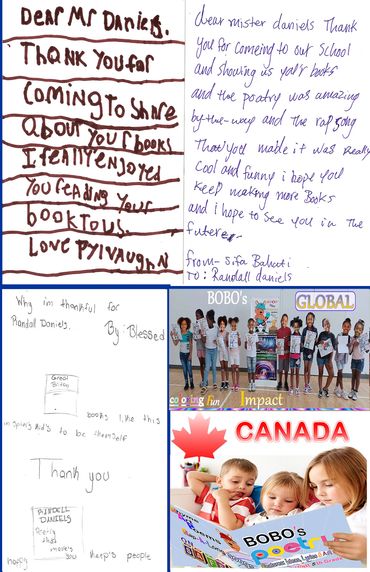 Dear Mr Daniels.
Thank you for
coming to share
about your books
I really enjoyed
you reading your
book to us.
Love Pylvaughn
dear mister daniels Thank
you for comeing to out School
and showing us your books
and the poatry was amazing
by-the-way and the rap song
That you made it was Really
Cool and funny i hope you
Keep making more Books
and i hope to see you in The
future
from- Sifa Bahati
To: Randall daniels
Why im thankful for
Randall Daniels.
By: Blessed
Great
books like this
kid's to be themself
Thank you
RANDELL
DANIELS
that
moves
you
happy
people
BOBO's
GLOBAL
coloring fun
Impact
CANADA
BOBO's
poetry